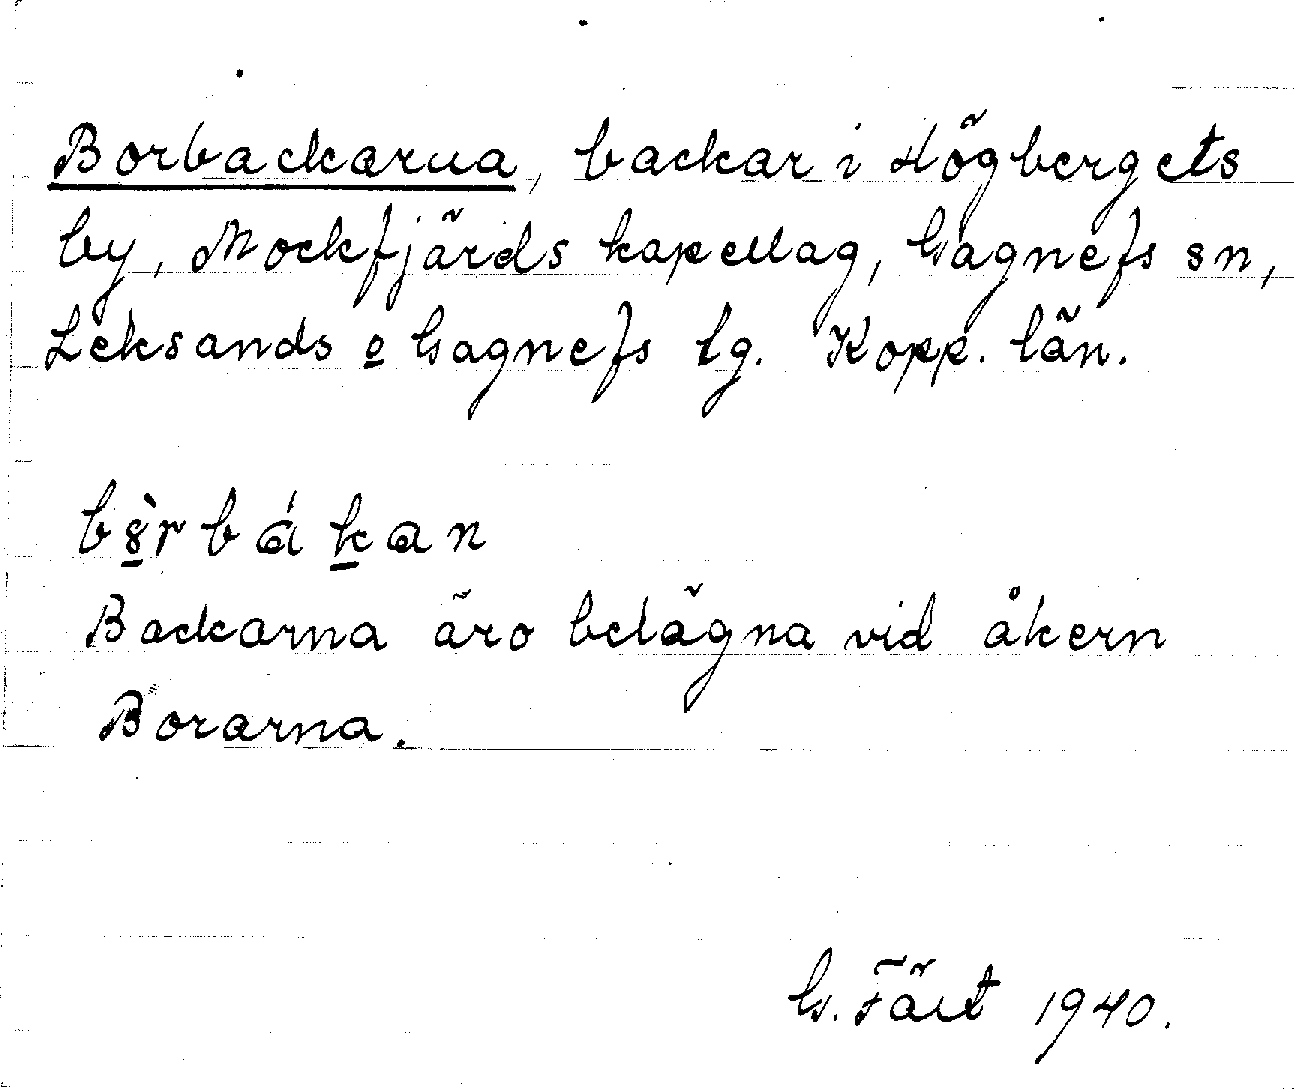 Borbackarna, backar i Högbergets
by, Mockfjärds kapellag, Gagnefs sn,
Leksands o Gagnefs tg. Kopp. län.
Backarna äro belägna vid åkern
Borarna.
G. Fält 1940.